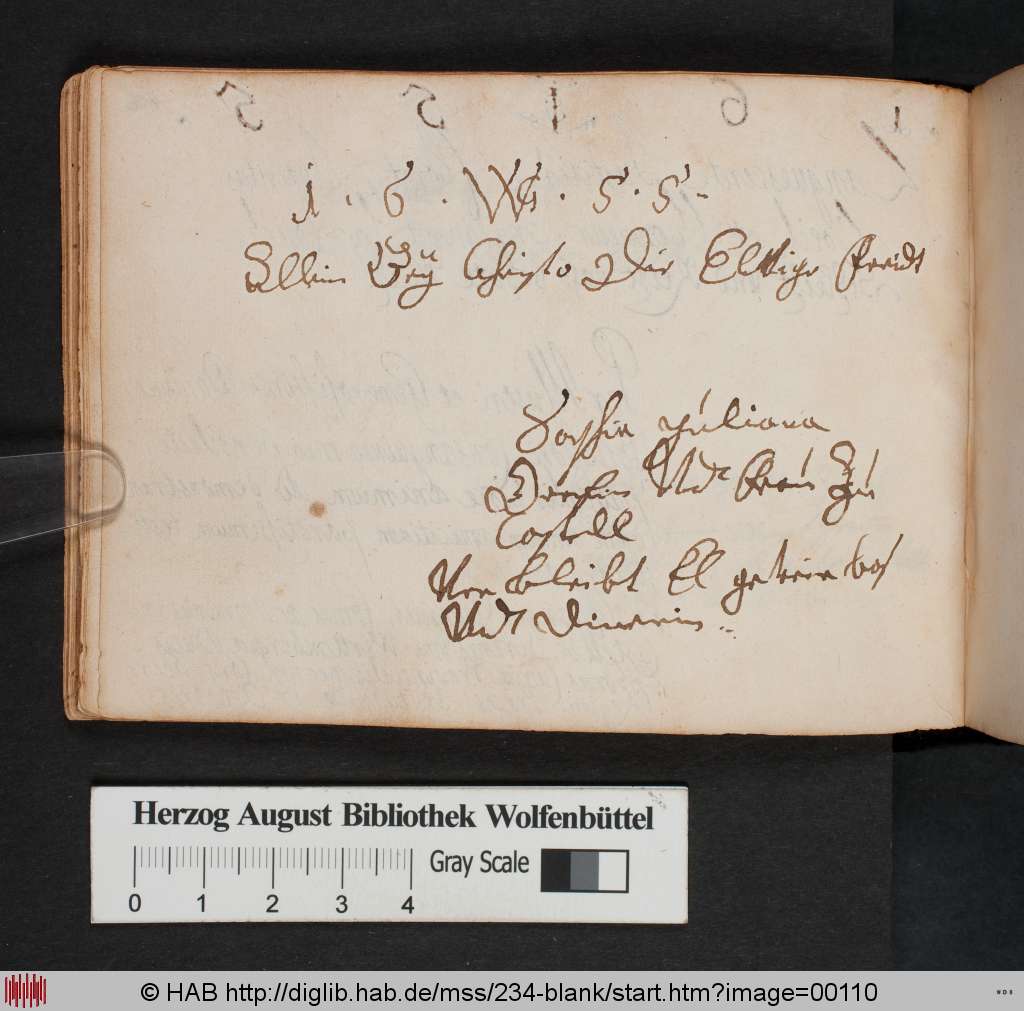 1 · 6 · WG · 5 · 5 ·
Allein Bey Christo Die Ewige freidt
Sophia Juliana
Greffin Vndt frau Zu
Castell
Ver bleibt El getreie bas
Vndt Dinerin
Herzog August Bibliothek Wolfenbüttel
Gray Scale
0 1 2 3 4
© HAB http://diglib.hab.de/mss/234-blank/start.htm?image=00110